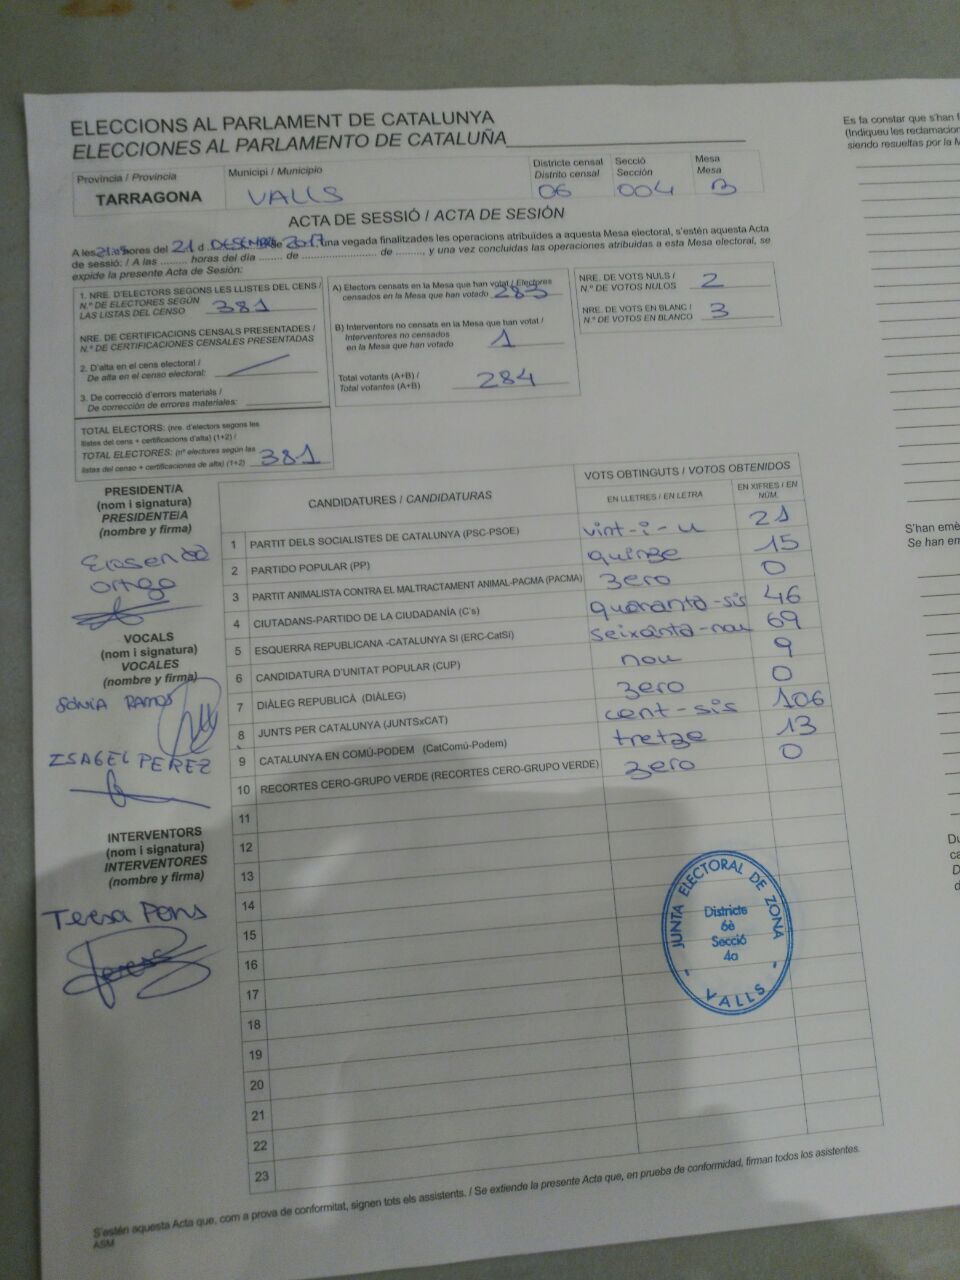 ELECCIONS AL PARLAMENT DE CATALUNYA
ELECCIONES AL PARLAMENTO DE CATALUÑA
Província / Provincia
TARRAGONA
Municipi / Municipio
VALLS
Districte censal
Distrito censal
06
Secció
Sección
004
Mesa
Mesa
B
ACTA DE SESSIÓ / ACTA DE SESIÓN
A les hores del 21 d DESEMBRE de 2017 una vegada finalitzades les operacions atribuides a aquesta Mesa electoral, s'estén aquesta Acta
de sessió: / A las ......... horas del día ....... de ........................ de ........, y una vez concluidas las operaciones atribuidas a esta Mesa electoral, se
expide la presente Acta de Sesión:
1. NRE. D'ELECTORS SEGONS LES LLISTES DEL CENS /
N.º DE ELECTORES SEGÚN
LAS LISTAS DEL CENSO 381
NRE. DE CERTIFICACIONS CENSALS PRESENTADES /
N.º DE CERTIFICACIONES CENSALES PRESENTADAS
2. D'alta en el cens electoral /
De alta en el censo electoral:
3. De correcció d'errors materials /
De corrección de errores materiales:
TOTAL ELECTORS: (nre. d'electors segons les
llistes del cens + certificacions d'alta) (1+2) /
TOTAL ELECTORES: (nº electores según las
listas del censo + certificaciones de alta) (1+2) 381
A) Electors censats en la Mesa que han votat / Electores
censados en la Mesa que han votado 283
B) Interventors no censats en la Mesa que han votat /
Interventores no censados
en la Mesa que han votado 1
Total votants (A+B) /
Total votantes (A+B) 284
NRE. DE VOTS NULS /
N.º DE VOTOS NULOS 2
NRE. DE VOTS EN BLANC /
N.º DE VOTOS EN BLANCO 3
PRESIDENT/A
(nom i signatura)
PRESIDENTE/A
(nombre y firma)
Ortega
VOCALS
(nom i signatura)
VOCALES
(nombre y firma)
SÒNIA RAMOS
ISABEL PEREZ
INTERVENTORS
(nom i signatura)
INTERVENTORES
(nombre y firma)
Teresa Pons
CANDIDATURES / CANDIDATURAS
VOTS OBTINGUTS / VOTOS OBTENIDOS
EN LLETRES / EN LETRA
EN XIFRES / EN NÚM.
1 PARTIT DELS SOCIALISTES DE CATALUNYA (PSC-PSOE) vint-i-u 21
2 PARTIDO POPULAR (PP) quinze 15
3 PARTIT ANIMALISTA CONTRA EL MALTRACTAMENT ANIMAL-PACMA (PACMA) zero 0
4 CIUTADANS-PARTIDO DE LA CIUDADANÍA (C's) quaranta-sis 46
5 ESQUERRA REPUBLICANA -CATALUNYA SI (ERC-CatSí) seixanta-nou 69
6 CANDIDATURA D'UNITAT POPULAR (CUP) nou 9
7 DIÀLEG REPUBLICÀ (DIÀLEG) zero 0
8 JUNTS PER CATALUNYA (JUNTSxCAT) cent-sis 106
9 CATALUNYA EN COMÚ-PODEM (CatComú-Podem) tretze 13
10 RECORTES CERO-GRUPO VERDE (RECORTES CERO-GRUPO VERDE) zero 0
11
12
13
14
15
16
17
18
19
20
21
22
23
JUNTA ELECTORAL DE ZONA
Districte
6è
Secció
4a
- VALLS -
S'estén aquesta Acta que, com a prova de conformitat, signen tots els assistents. / Se extiende la presente Acta que, en prueba de conformidad, firman todos los asistentes.
ASM
Es fa constar que s'han
(Indiqueu les reclamacion
siendo resueltas por la M
S'han emè
Se han em